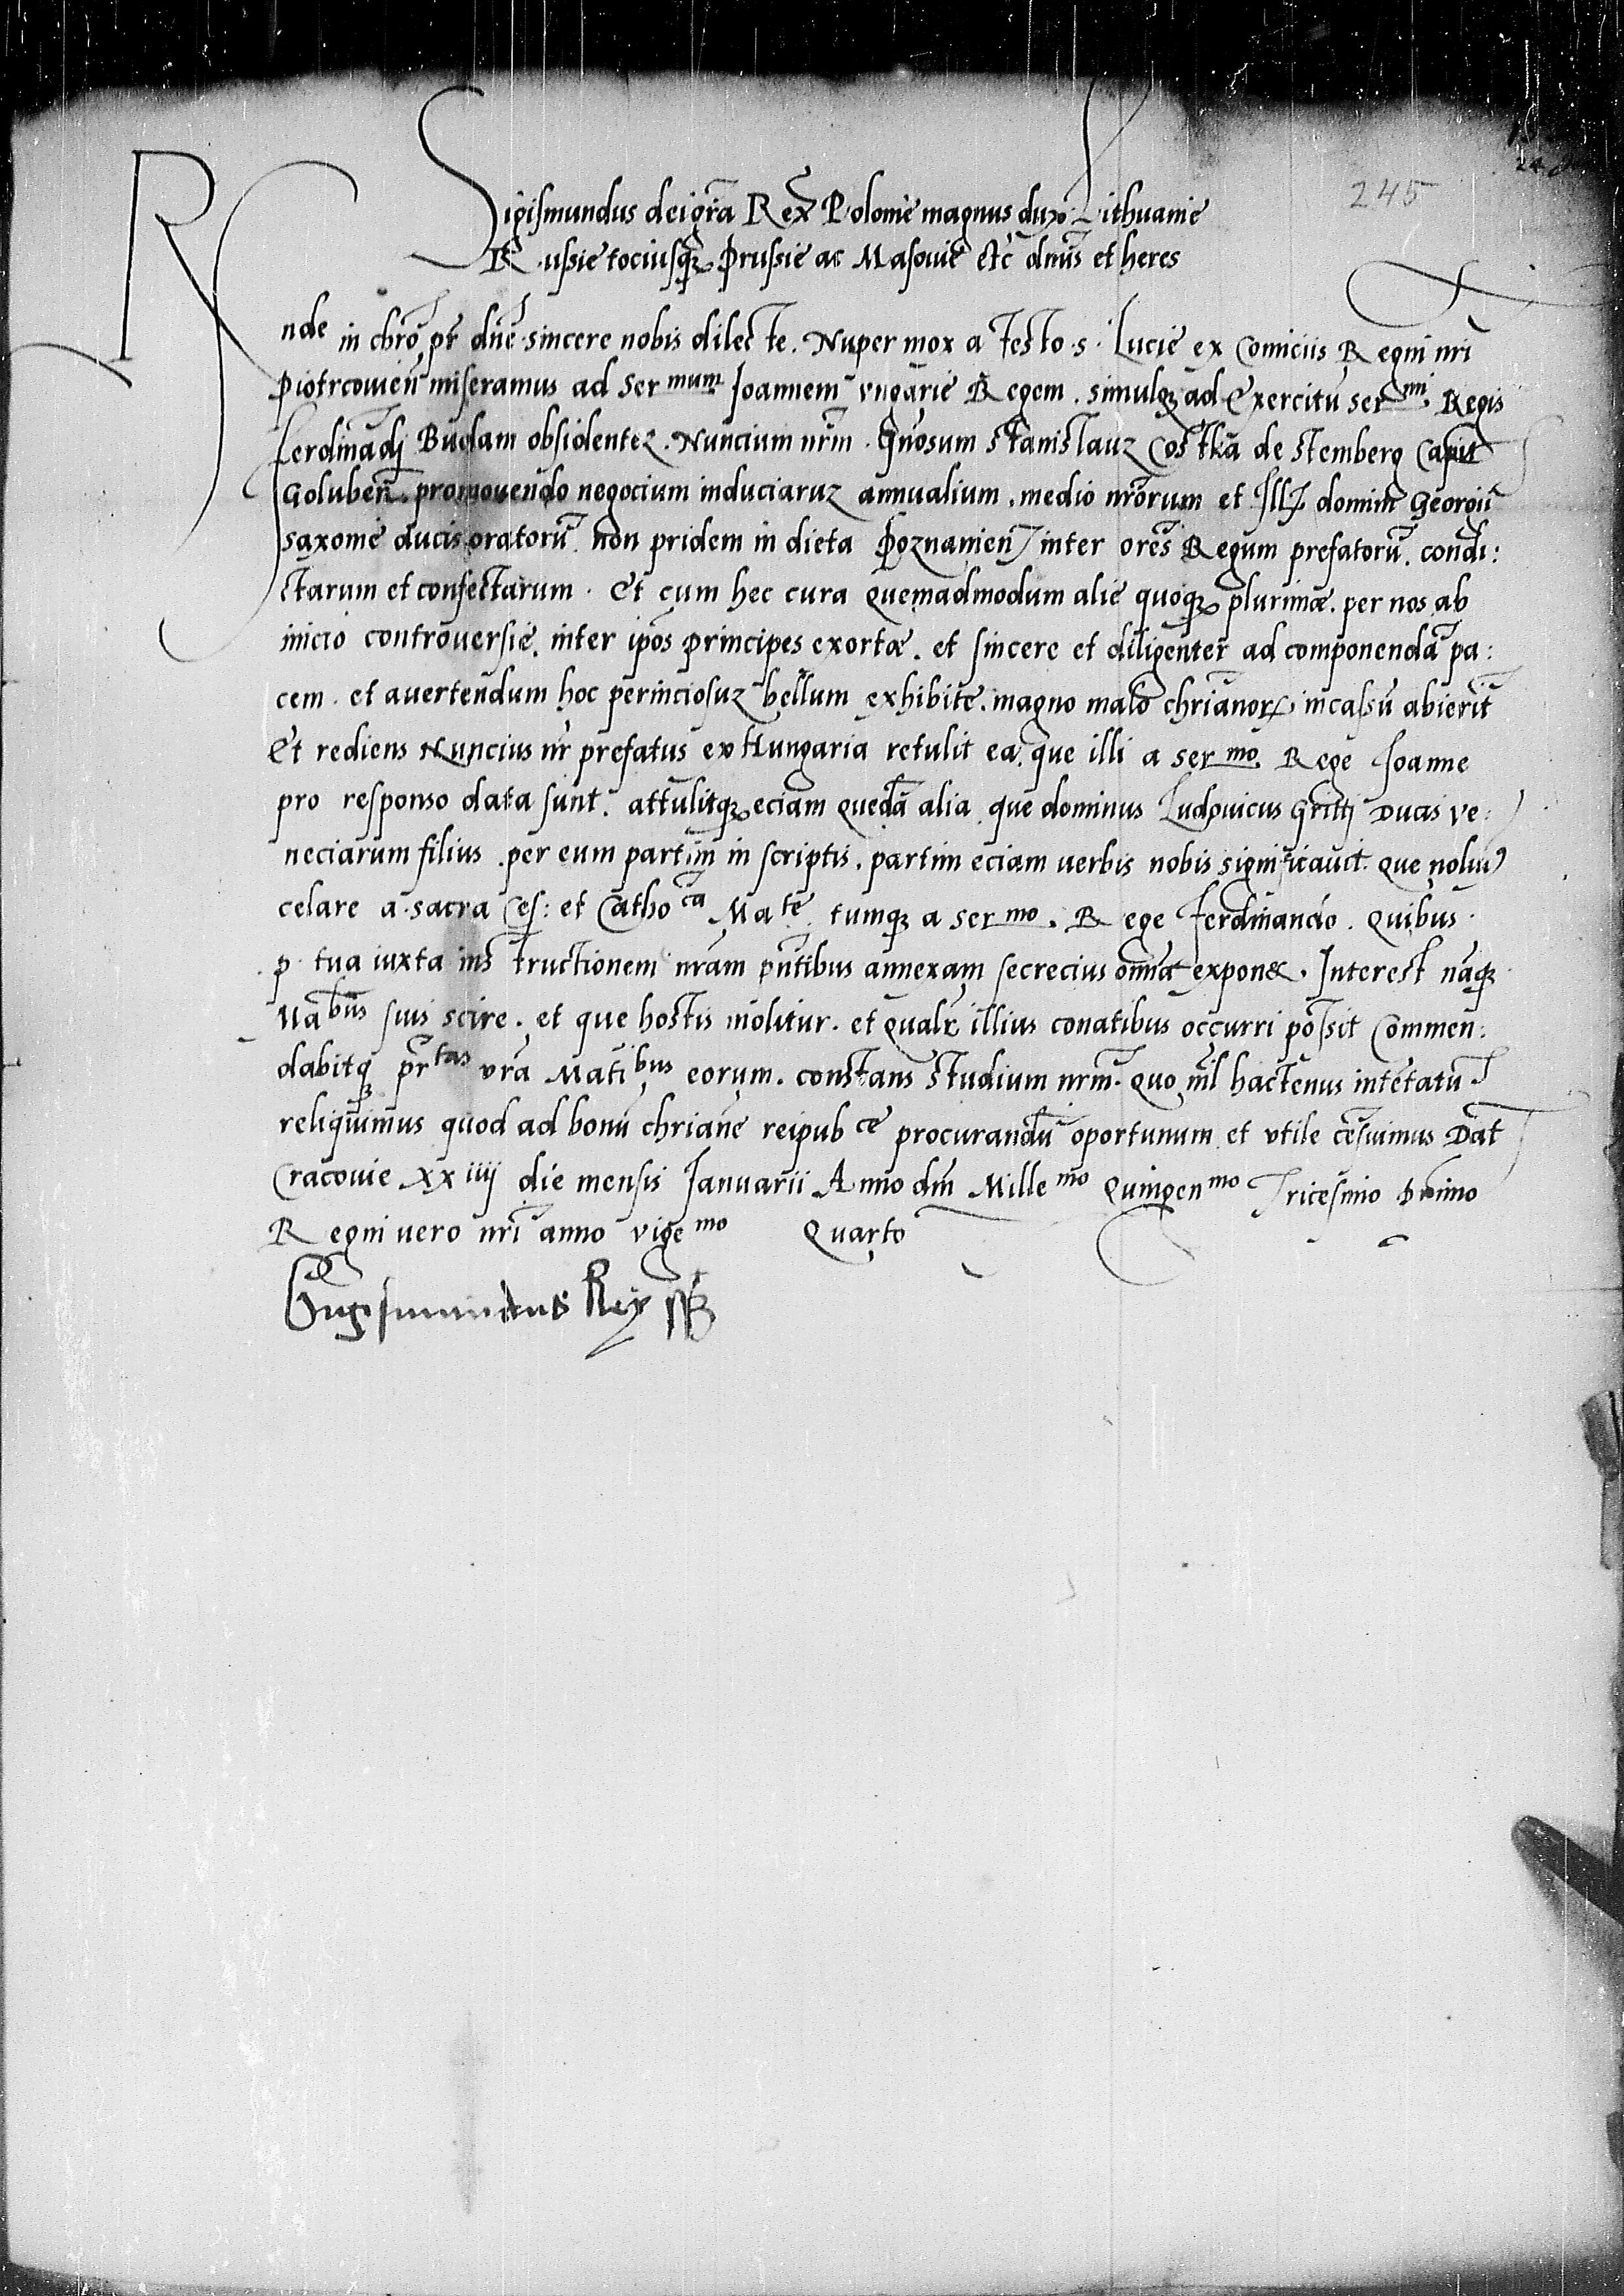 245
Sigismundus dei gr̃a Rex Polonie magnus dux Lithuanie
Russie tociusq₃ Prussie ac Masovie etc̃ dñus et heres
Rnde in chrõ pr̃ dñe sincere nobis dilecte. Nuper mox a festo s. Lucie ex Comiciis Regni nr̃i
Piotrcovien̄ miseramus ad Ser mum Joannem Vngarie Regem. simulq₃ ad Exercitũ ser mi Regis
Ferdinãdi Budam obsidentez. Nuncium nr̃m Gnosum Stanislauz Costka de Stemberg Capit̃
Goluben̄. promovendo negocium induciaruz annualium, medio nr̃orum et Illꝫ domini Georgii
saxonie ducis oratorũ non pridem in dieta Poznanien̄ inter ores̃ Regum prefatorũ. condi:
ctarum et confectarum. Et cum hec cura quemadmodum alie quoq₃ plurimæ. per nos ab
inicio controversie. inter ip̃os principes exortæ. et sincere et diligenter ad componendã pa:
cem. et avertendum hoc perniciosuz bellum exhibite. magno malo chr̃ianoꝝ incassũ abierit̃
Et rediens Nuncius nr̃ prefatus ex Hungaria retulit ea. que illi a ser mo. Rege Joanne
pro responso data sunt. attulitq₃ eciam quedã alia que dominus Ludovicus Gritti Ducis Ve:
neciarum filius. per eum partim in scriptis. partim eciam verbis nobis significavit. que nolui⁹
celare a sacra Ces: et Catho ca Mate. tumq₃ a ser mo. Rege Ferdinando. quibus
p. tua iuxta instructionem nr̃am pn̄tibus annexam secrecius omñia exponet. Interest nãq₃
Mabus suis scire. et que hostis molitur. et qualr̃ illius conatibus occurri possit Commen:
dabitq₃ pr̃ tas vr̃a Matibus eorum. constans studium nr̃m. quo nīl hactenus intẽtatũ
reliquimus quod ad bonũ chr̃iane reipub ce procurandũ oportunum et vtile cẽsuimus Dat̃
Cracovie XX iiij die mensis Januarii Anno dñi Mille mo Quingen mo Tricesimo primo
Regni vero nr̃i anno vige mo Quarto
Sigismundus Rex sst